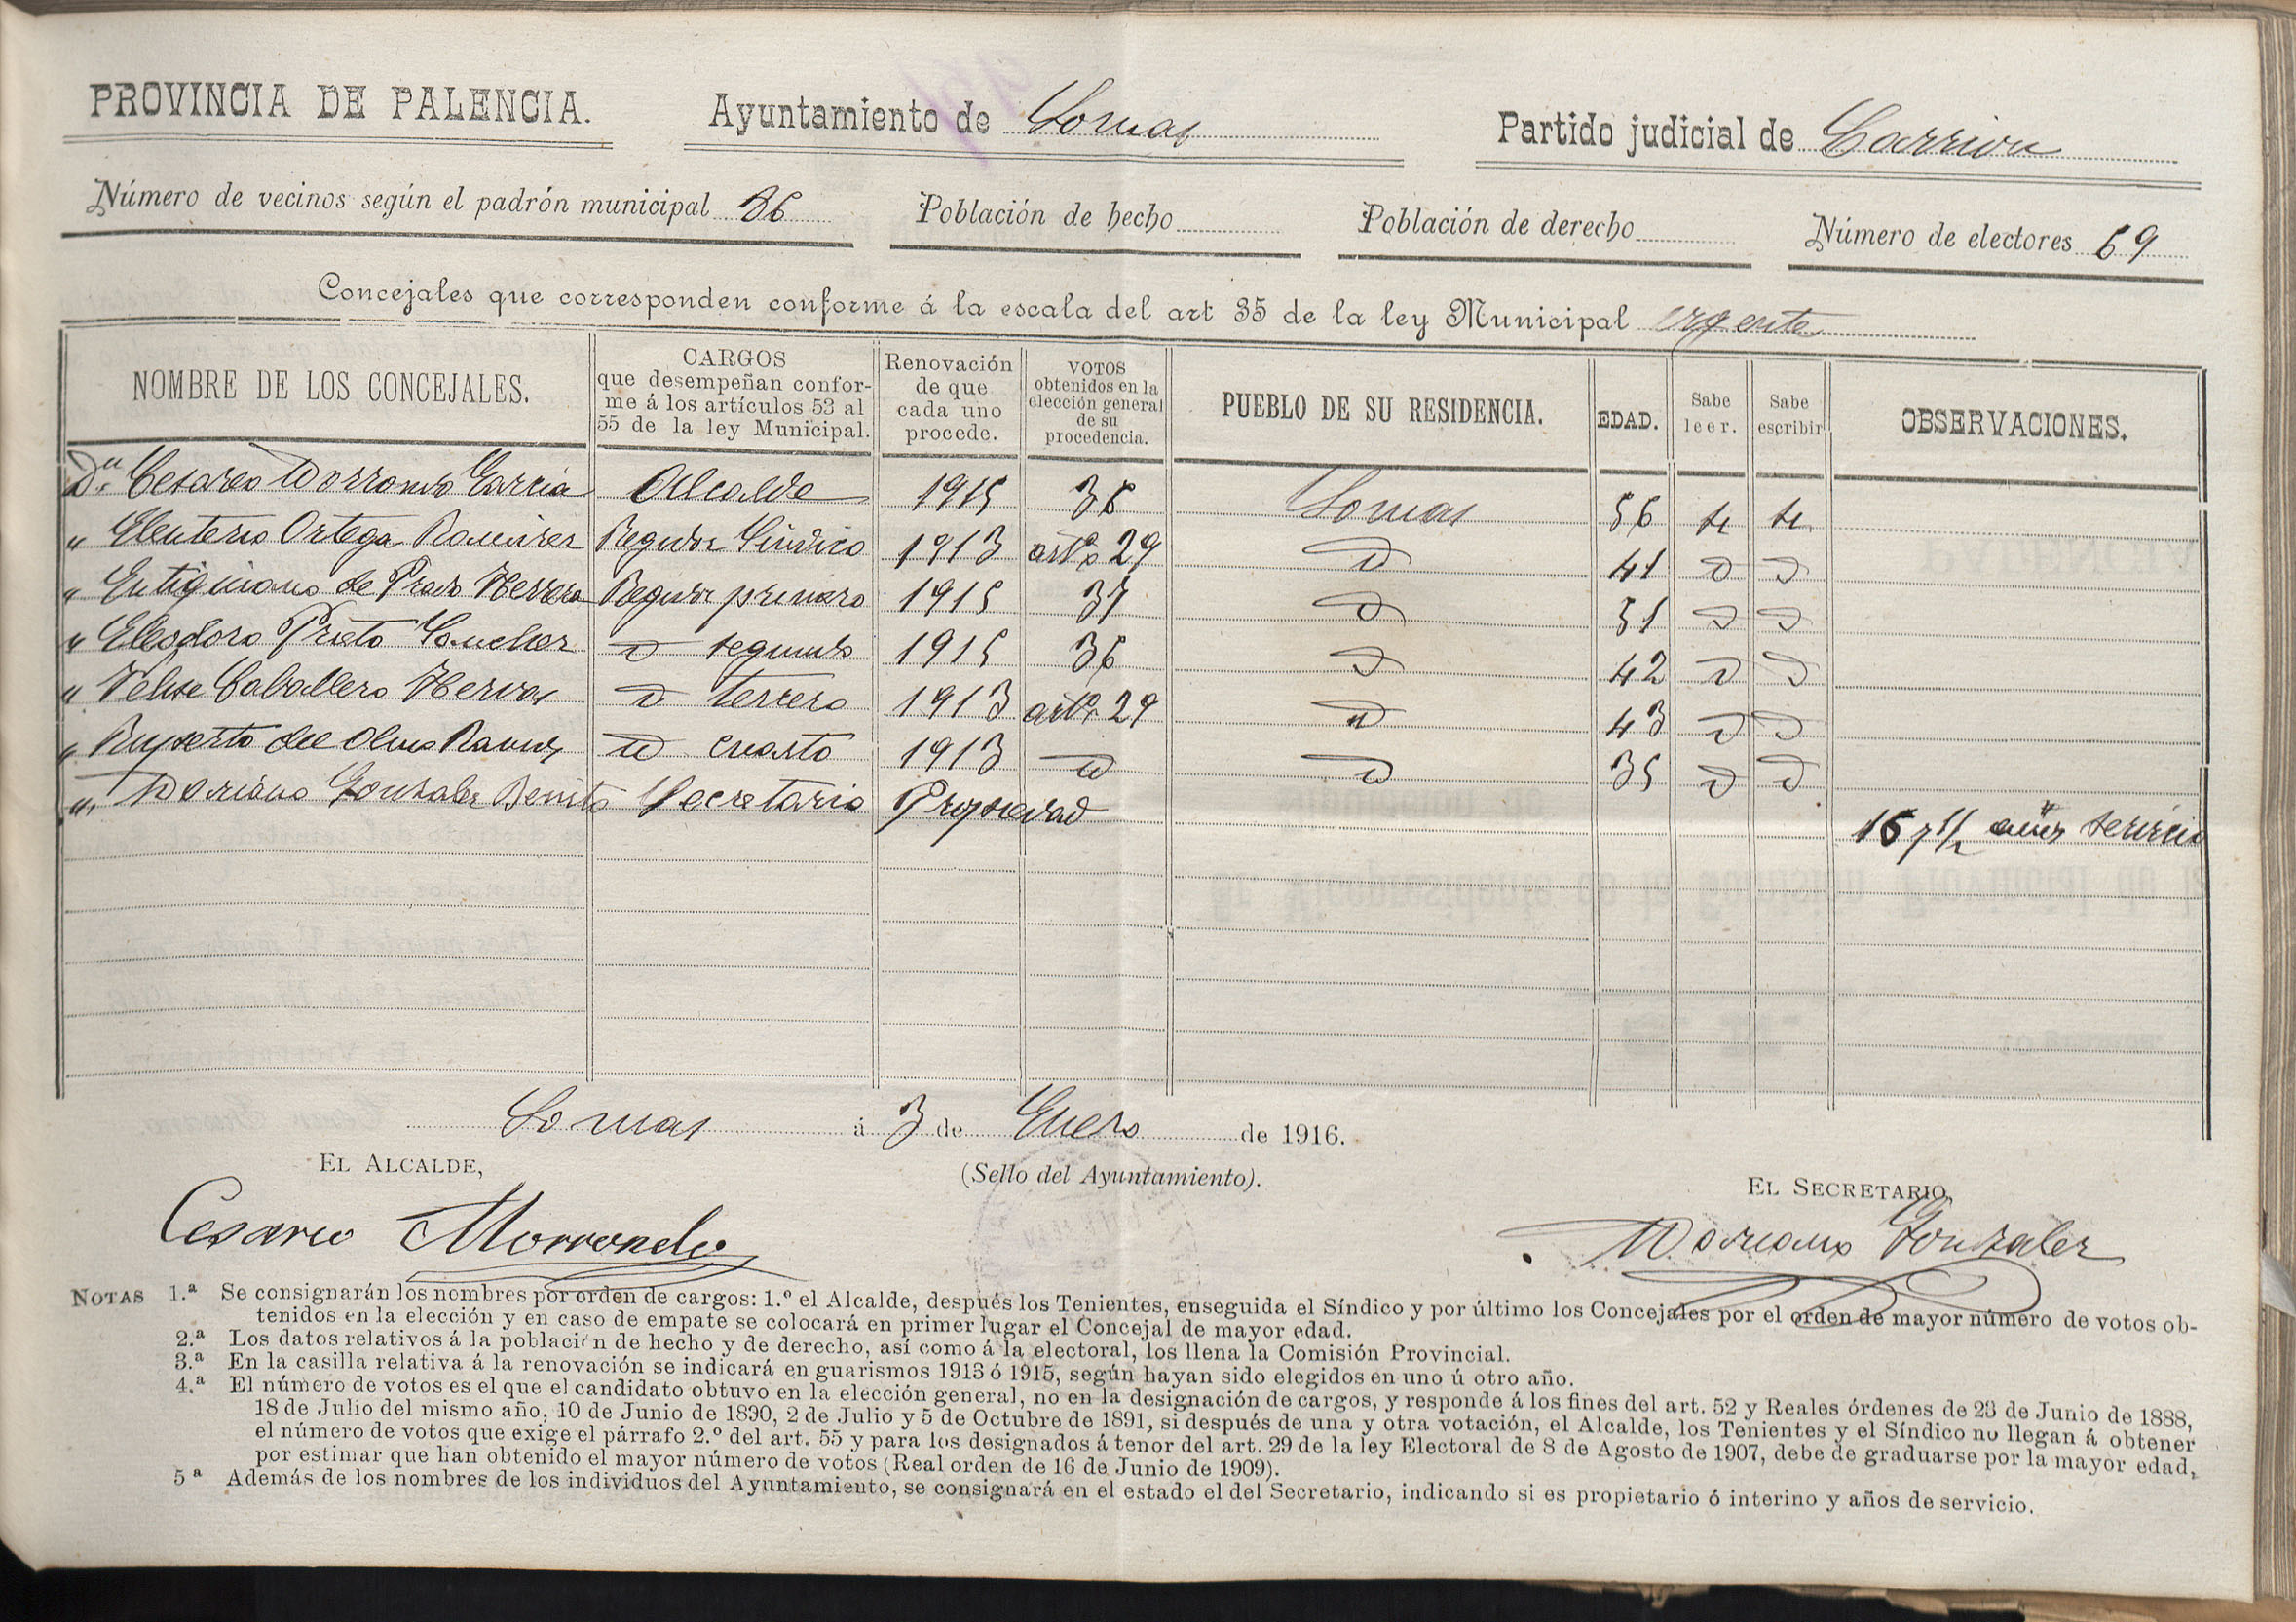 PROVINCIA DE PALENCIA. Ayuntamiento de Lomas Partido judicial de Carrion
Número de vecinos según el padrón municipal 86 Población de hecho Población de derecho Número de electores 69
Concejales que corresponden conforme á la escala del art 35 de la ley Municipal vigente
NOMBRE DE LOS CONCEJALES. CARGOS que desempeñan conforme á los artículos 53 al 55 de la ley Municipal. Renovación de que cada uno procede. VOTOS obtenidos en la elección general de su procedencia. PUEBLO DE SU RESIDENCIA. EDAD. Sabe leer. Sabe escribir OBSERVACIONES.
Dn. Cesareo Morrondo Garcia Alcalde 1915 36 Lomas 56 si si
" Eleuterio Ortega Ramirez Regidor Sindico 1913 artº 29 id 41 id id
" de Prado Herrero Regidor primero 1915 37 id 51 id id
" Eleodoro Prieto Sanchez id segundo 1915 36 id 42 id id
" Felipe Caballero Hervas id tercero 1913 artº 29 id 43 id id
" Ruperto del Olmo Ramos id cuarto 1913 id id 35 id id
" Mariano Gonzalez Benito Secretario Propiedad 16 y 1/2 años servicio
Lomas á 3 de Enero de 1916.
EL ALCALDE, (Sello del Ayuntamiento). EL SECRETARIO,
Cesareo Morrondo Mariano Gonzalez
NOTAS 1.ª Se consignarán los nombres por orden de cargos: 1.º el Alcalde, después los Tenientes, enseguida el Síndico y por último los Concejales por el orden de mayor número de votos ob-
tenidos en la elección y en caso de empate se colocará en primer lugar el Concejal de mayor edad.
2.ª Los datos relativos á la población de hecho y de derecho, así como á la electoral, los llena la Comisión Provincial.
3.ª En la casilla relativa á la renovación se indicará en guarismos 1913 ó 1915, según hayan sido elegidos en uno ú otro año.
4.ª El número de votos es el que el candidato obtuvo en la elección general, no en la designación de cargos, y responde á los fines del art. 52 y Reales órdenes de 23 de Junio de 1888,
18 de Julio del mismo año, 10 de Junio de 1890, 2 de Julio y 5 de Octubre de 1891, si después de una y otra votación, el Alcalde, los Tenientes y el Síndico no llegan á obtener
el número de votos que exige el párrafo 2.º del art. 55 y para los designados á tenor del art. 29 de la ley Electoral de 8 de Agosto de 1907, debe de graduarse por la mayor edad,
por estimar que han obtenido el mayor número de votos (Real orden de 16 de Junio de 1909).
5ª Además de los nombres de los individuos del Ayuntamiento, se consignará en el estado el del Secretario, indicando si es propietario ó interino y años de servicio.